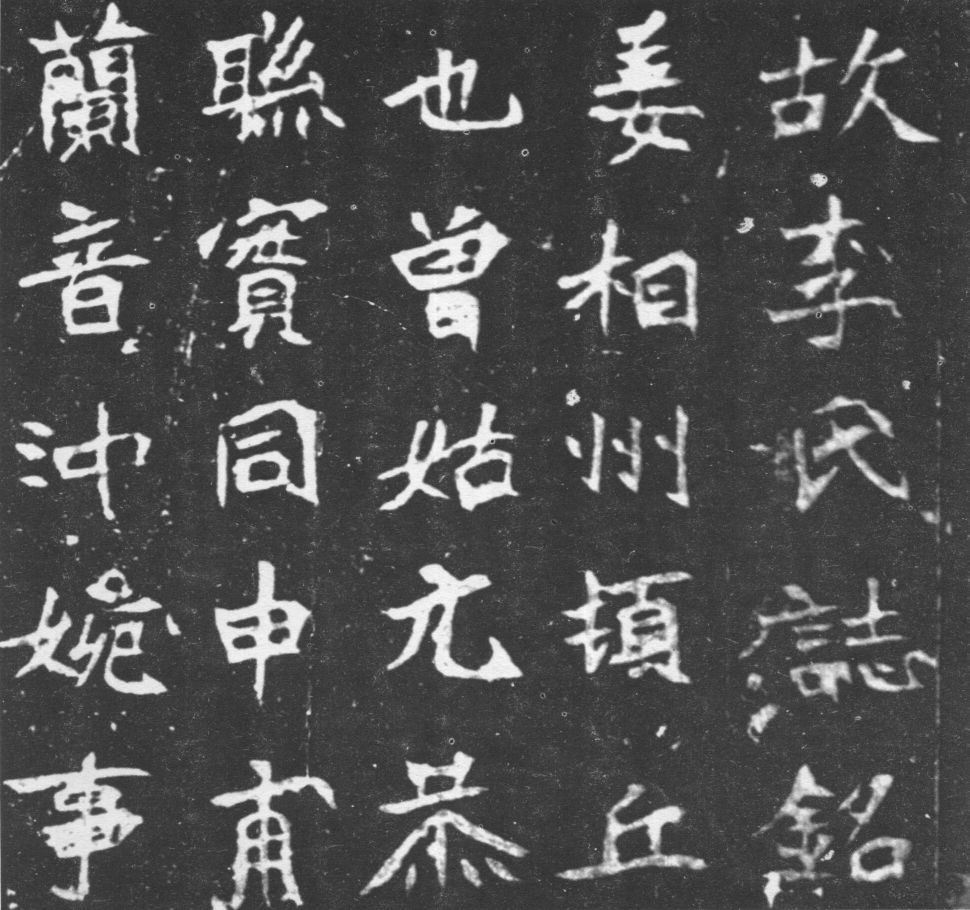 故李氏誌銘
姜相州頓丘
也曾姑元恭
聯實同申甫
蘭音沖婉事